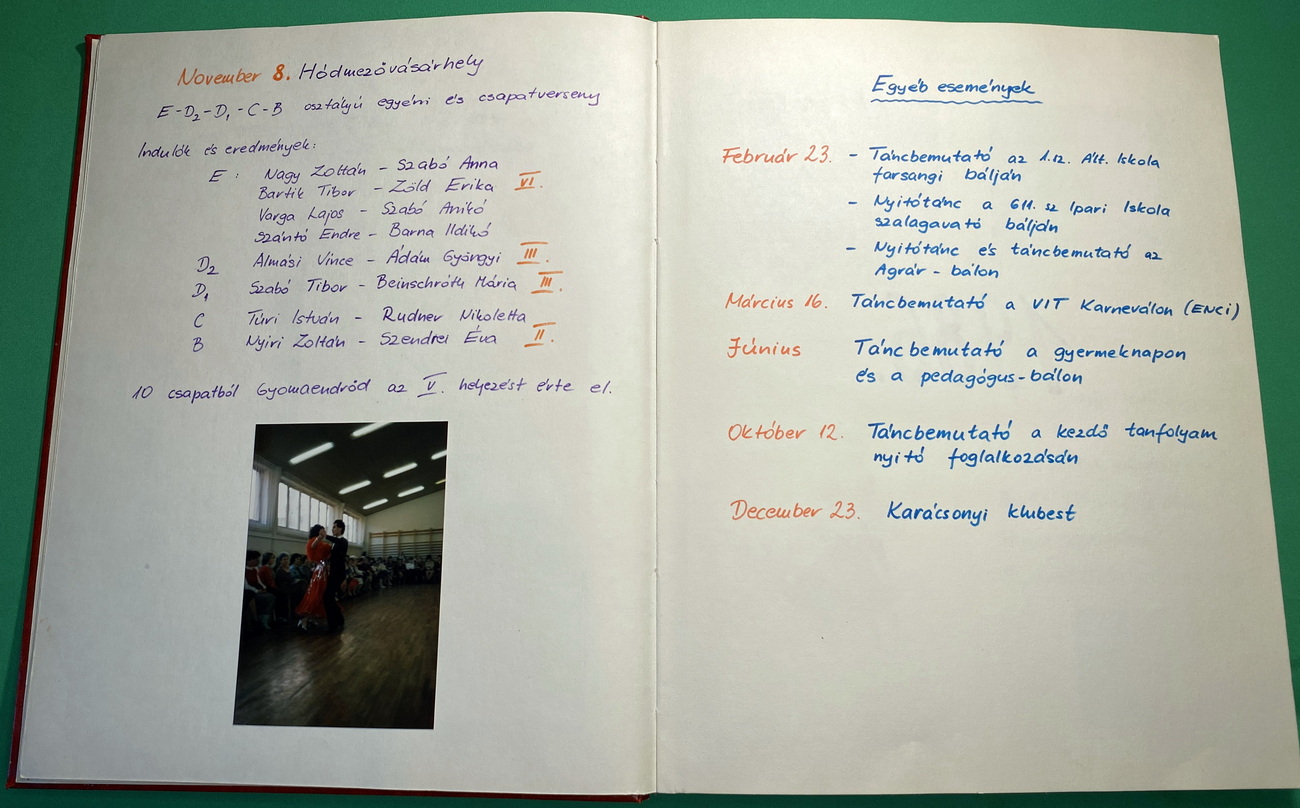 November 8. Hódmezővásárhely
E-D2-D1-C-B osztályú egyéni és csapatverseny
Indulók és eredmények:
E: Nagy Zoltán - Szabó Anna
Bartik Tibor - Zöld Erika VI.
Varga Lajos - Szabó Anikó
Szántó Endre - Barna Ildikó
D2 Almási Vince - Ádám Györgyi III.
D1 Szabó Tibor - Beinschróth Mária III.
C Túri István - Rudner Nikoletta
B Nyíri Zoltán - Szendrei Éva II.
10 csapatból Gyomaendrőd az V. helyezést érte el.
Egyéb események
Február 23. - Táncbemutató az 1.sz. Ált. Iskola
farsangi bálján
- Nyitótánc a 611. sz Ipari Iskola
szalagavató bálján
- Nyitótánc és táncbemutató az
Agrár - bálon
Március 16. Táncbemutató a VIT Karneválon (ENCI)
Június Táncbemutató a gyermeknapon
és a pedagógus-bálon
Október 12. Táncbemutató a kezdő tanfolyam
nyitó foglalkozásán
December 23. Karácsonyi klubest